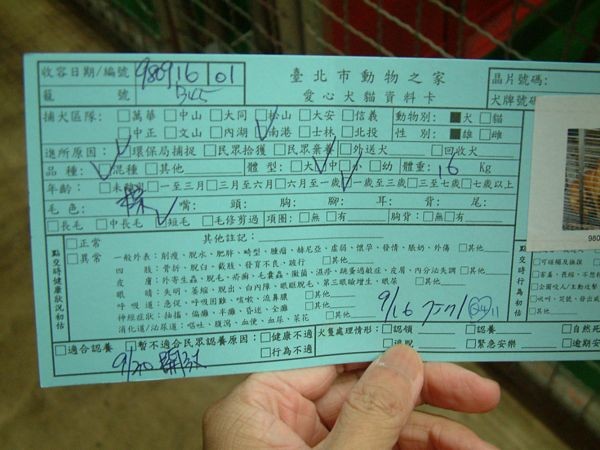 收容日期/編號 980916 01 臺北市動物之家 晶片號碼:
籠 號 B45 愛心犬貓資料卡 犬牌號碼
捕犬區隊: □萬華 □中山 □大同 □松山 □大安 □信義 動物別: ■犬 □貓
□中正 □文山 □內湖 □南港 □士林 □北投 性 別: ■雄 □雌
進所原因: □環保局捕捉 □民眾拾獲 □民眾棄養 □外送犬 □回收犬
品種: □混種 □其他 體型: □大 □中 □小 □幼 體重: 16 Kg
年齡: □未 □一至三月 □三月至六月 □六月至一歲 □一歲至三歲 □三至七歲 □七歲以上
毛色: 棕 嘴: 頭: 胸: 腳: 耳: 背: 尾:
□長毛 □中長毛 □短毛 □毛修剪過 項圈: □無 □有 胸背: □無 □有
點交時健康狀況初估
□正常 其他註記:
□異常 一般外表: 削瘦、脫水、肥胖、畸型、腫瘤、赫尼亞、虛弱、懷孕、發情、脹奶、外傷 □其他
四 肢: 骨折、脫臼、截肢、發育不良、跛行 □其他
皮 膚: 外寄生蟲、脫毛、疥癬、毛囊蟲、黴菌、濕疹、跳蚤過敏症、皮屑、內分泌失調 □其他
眼 睛: 失明、萎縮、脫出、白內障、眼瞼脫毛、第三眼瞼增生、眼屎 □其他
呼吸道: 急促、呼吸困難、咳嗽、流鼻膿 □其他
神經症狀: 抽搐、偏癱、半癱、昏迷、全癱 □其他
消化道/泌尿道: 嘔吐、腹瀉、血便、血尿、菜花 □其他
9/16
□適合認養 □暫不適合民眾認養原因: □健康不適 犬隻處理情形: □認領 □認養 □自然死
□行為不適 □逃脫 □緊急安樂 □逾期安
9/20
980